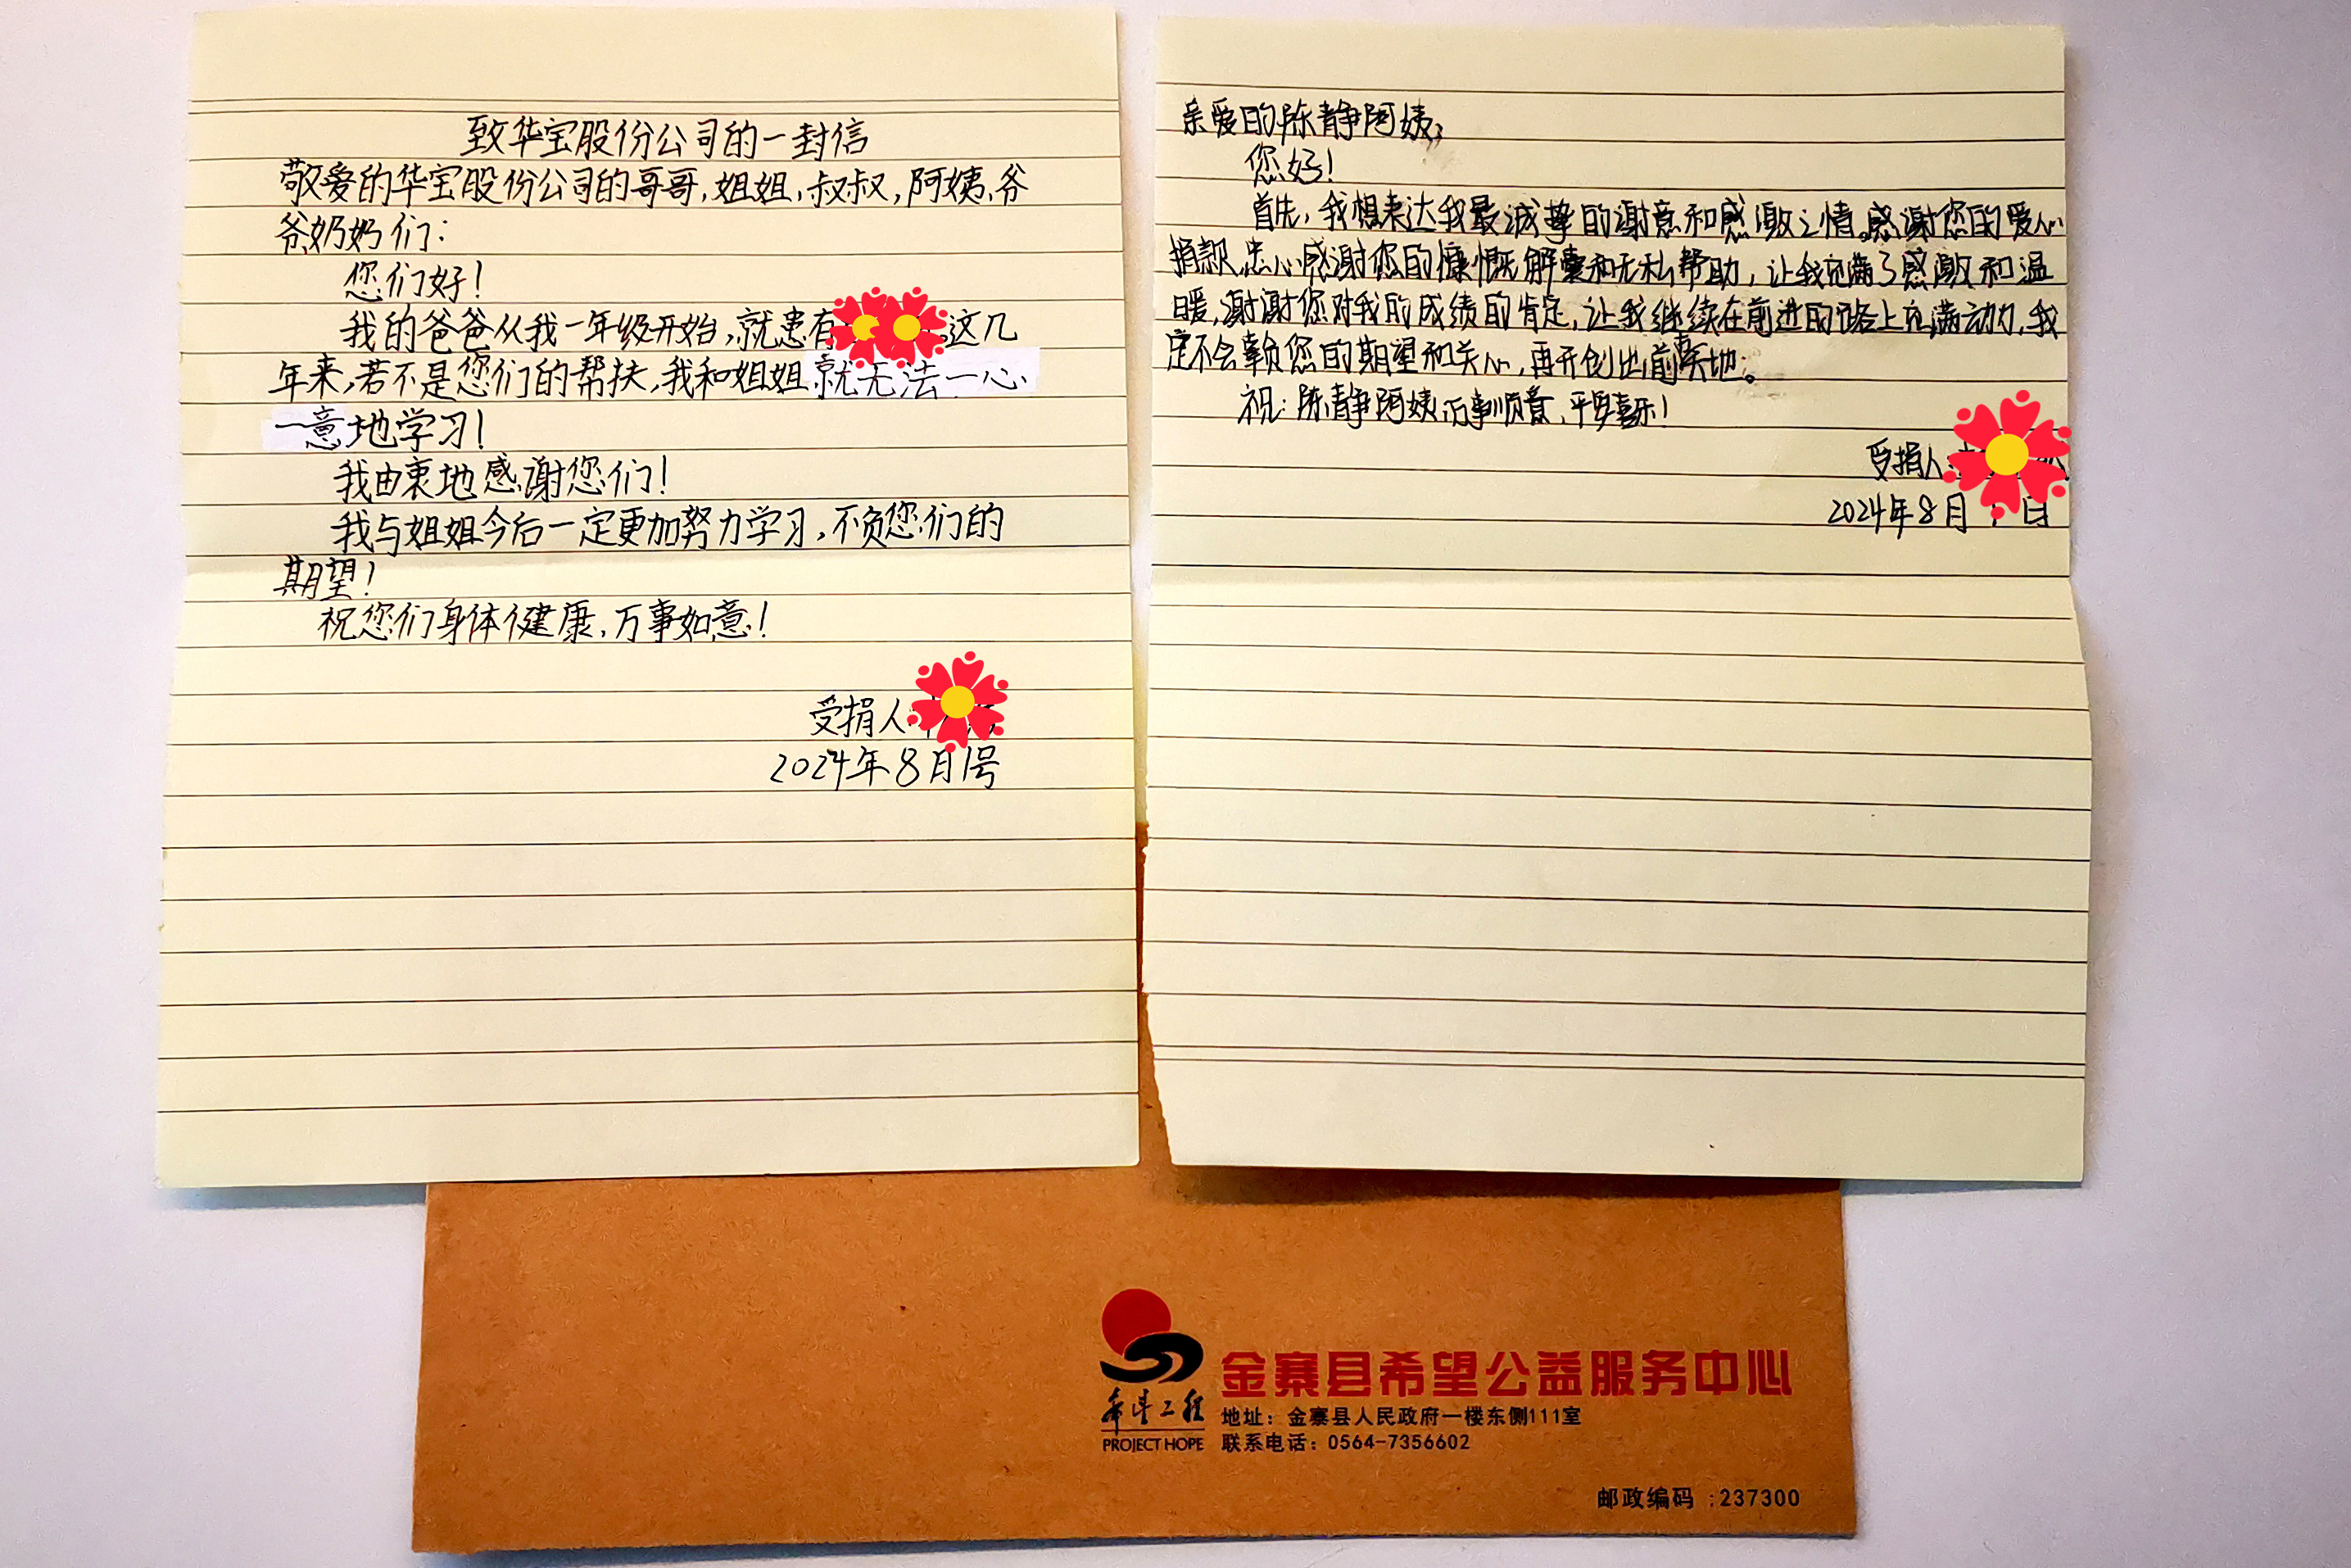 致华宝股份公司的一封信
敬爱的华宝股份公司的哥哥,姐姐,叔叔,阿姨,爷
爷奶奶们:
您们好!
我的爸爸从我一年级开始,就患有 。这几
年来,若不是您们的帮扶,我和姐姐就无法一心
一意地学习!
我由衷地感谢您们!
我与姐姐今后一定更加努力学习,不负您们的
期望!
祝您们身体健康,万事如意!
受捐人:
2024年8月1号
亲爱的陈静阿姨,
您好!
首先,我想表达我最诚挚的谢意和感激之情。感谢您的爱心
捐款,忠心感谢您的慷慨解囊和无私帮助,让我充满了感激和温
暖,谢谢您对我的成绩的肯定,让我继续在前进的路上充满动力,我
定不会辜负您的期望和关心,再开创出前 地。
祝:陈静阿姨万事顺意,平安喜乐!
受捐人:
2024年8月 日
希望工程
PROJECT HOPE
金寨县希望公益服务中心
地址:金寨县人民政府一楼东侧111室
联系电话:0564-7356602
邮政编码:237300